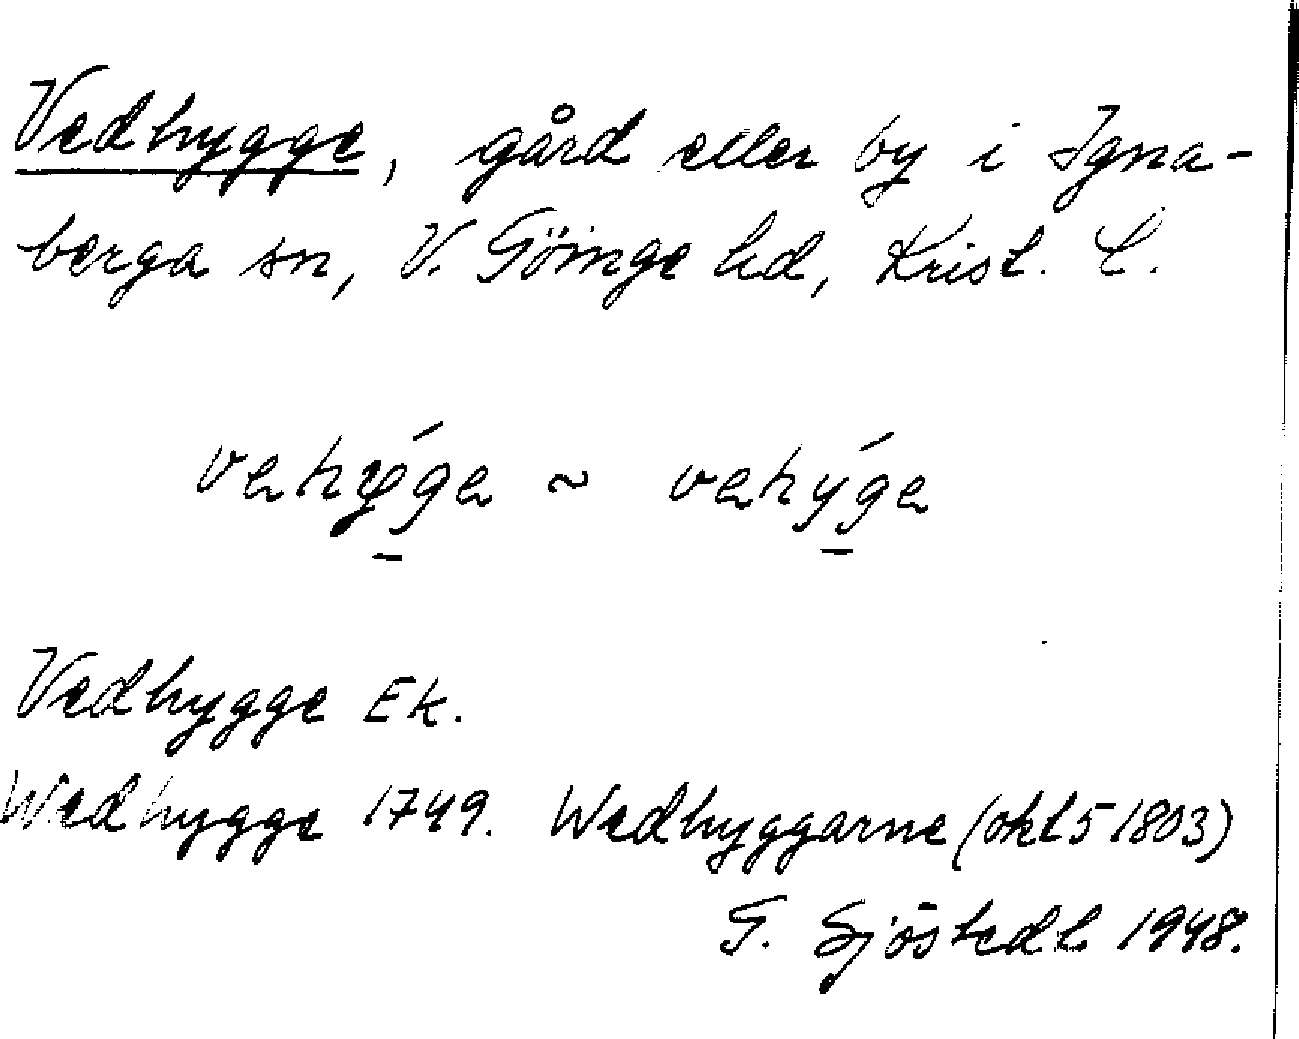 Vedhygge, gård eller by i Igna-
berga sn, V. Göinge hd, Krist. L.
vehýge ~ vehýge
Vedhygge Ek.
Wedhygge 1749. Wedhyggarne (okt 5 1803)
G. Sjöstedt 1948.